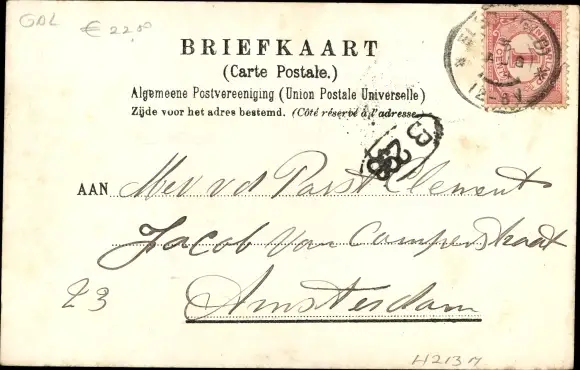 GDL € 22.00
BRIEFKAART
(Carte Postale.)
Algemeene Postvereeniging (Union Postale Universelle)
Zijde voor het adres bestemd. (Côté réservé à l'adresse.)
AAN Mev v d Parst Clement
Jacob van Campenstraat
23 Amsterdam
H213M